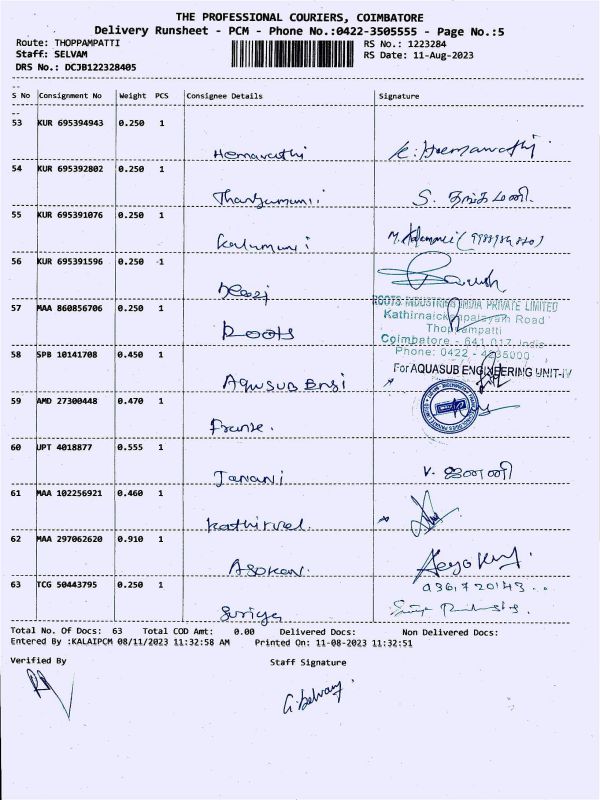 THE PROFESSIONAL COURIERS, COIMBATORE
Delivery Runsheet - PCM - Phone No.:0422-3505555 - Page No.:5
Route: THOPPAMPATTI RS No.: 1223284
Staff: SELVAM RS Date: 11-Aug-2023
DRS No.: DCJB122328405
S No Consignment No Weight PCS Consignee Details Signature
53 KUR 695394943 0.250 1
Hemavathi K. Heemawathi
54 KUR 695392802 0.250 1
Thangamani S. தங்கமணி.
55 KUR 695391076 0.250 1
Kalamani
56 KUR 695391596 0.250 1
57 MAA 860856706 0.250 1
Roots
ROOTS INDUSTRIES INDIA PRIVATE LIMITED
Kathirnaickenpalayam Road
Thoppampatti
Coimbatore - 641 017, India
Phone: 0422 - 4235000
58 SPB 10141708 0.450 1
Aquasub Engi
For AQUASUB ENGINEERING UNIT-IV
59 AMD 27300448 0.470 1
60 UPT 4018877 0.555 1
Janani V. ஜனனி
61 MAA 102256921 0.460 1
Kathirvel.
62 MAA 297062620 0.910 1
Asokan.
63 TCG 50443795 0.250 1
Suriya
Total No. Of Docs: 63 Total COD Amt: 0.00 Delivered Docs: Non Delivered Docs:
Entered By :KALAIPCM 08/11/2023 11:32:58 AM Printed On: 11-08-2023 11:32:51
Verified By Staff Signature